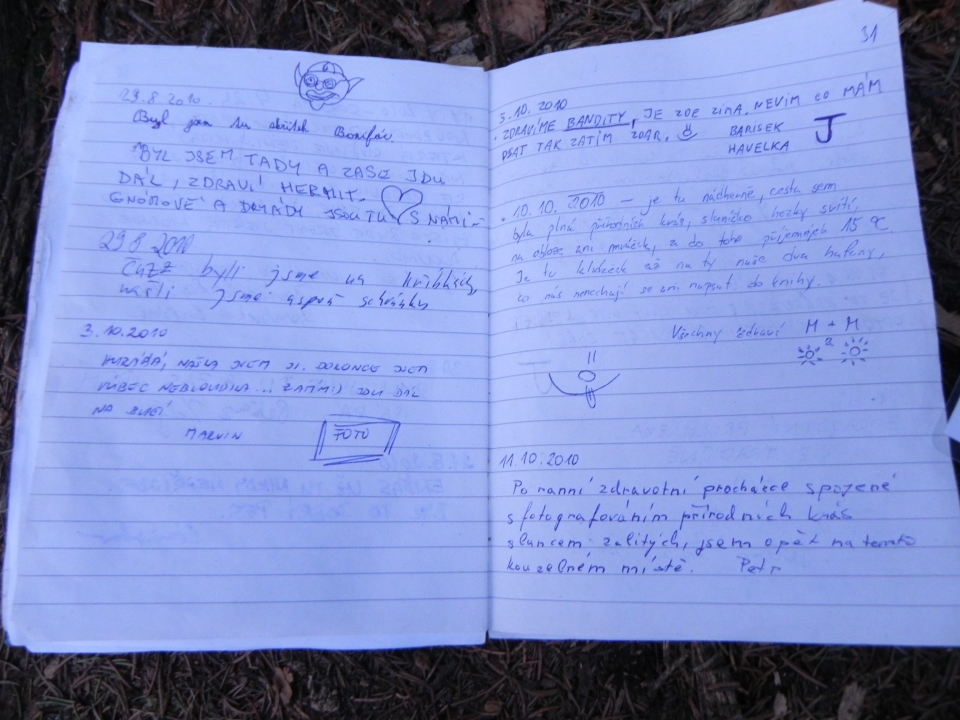 29.8 2010.
Byl jsem tu skřítek Bonifác.
BYL JSEM TADY A ZASE JDU
DÁL, ZDRAVÍ HERMIT.
GNÓMOVÉ A DRYÁDY JSOU TU S NÁMI
29.9 2010
byli jsme na hříbkách,
našli jsme aspoň schránku
3.10.2010
HURÁÁÁ, NAŠLA JSEM JI. DOKONCE JSEM
VŮBEC NEBLOUDILA... ZATÍM JDU DÁL
NA
MARVIN
FOTO
31
3.10.2010
ZDRAVÍME BANDITY, JE ZDE ZIMA. NEVÍM CO MÁM
PSÁT TAK ZATÍM ZDAR.
BARISEK
HAVELKA
J
10.10.2010 – je tu nádherně, cesta sem
byla plná přírodních krás, sluníčko hezky svítí,
na obloze ani mráček, a do toho příjemných 15 °C
Je tu klídeček až na ty naše dva hafany,
co nás nenechají se ani napsat do knihy.
Všechny zdraví M + M
11.10.2010
Po ranní zdravotní procházce spojené
s fotografováním přírodních krás
sluncem zalitých, jsem opět na tomto
kouzelném místě. Petr